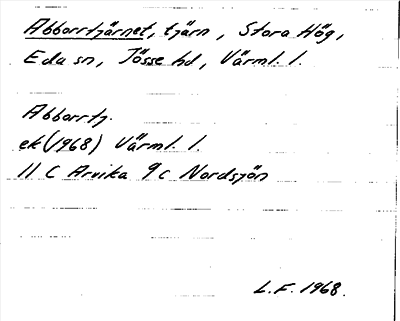 Abborrtjärnet, tjärn, Stora Hög,
Eda sn, Jösse hd, Värml. l.
Abborrtj.
ek (1968) Värml. l.
11 C Arvika 9 c Nordsjön
L.F. 1968.